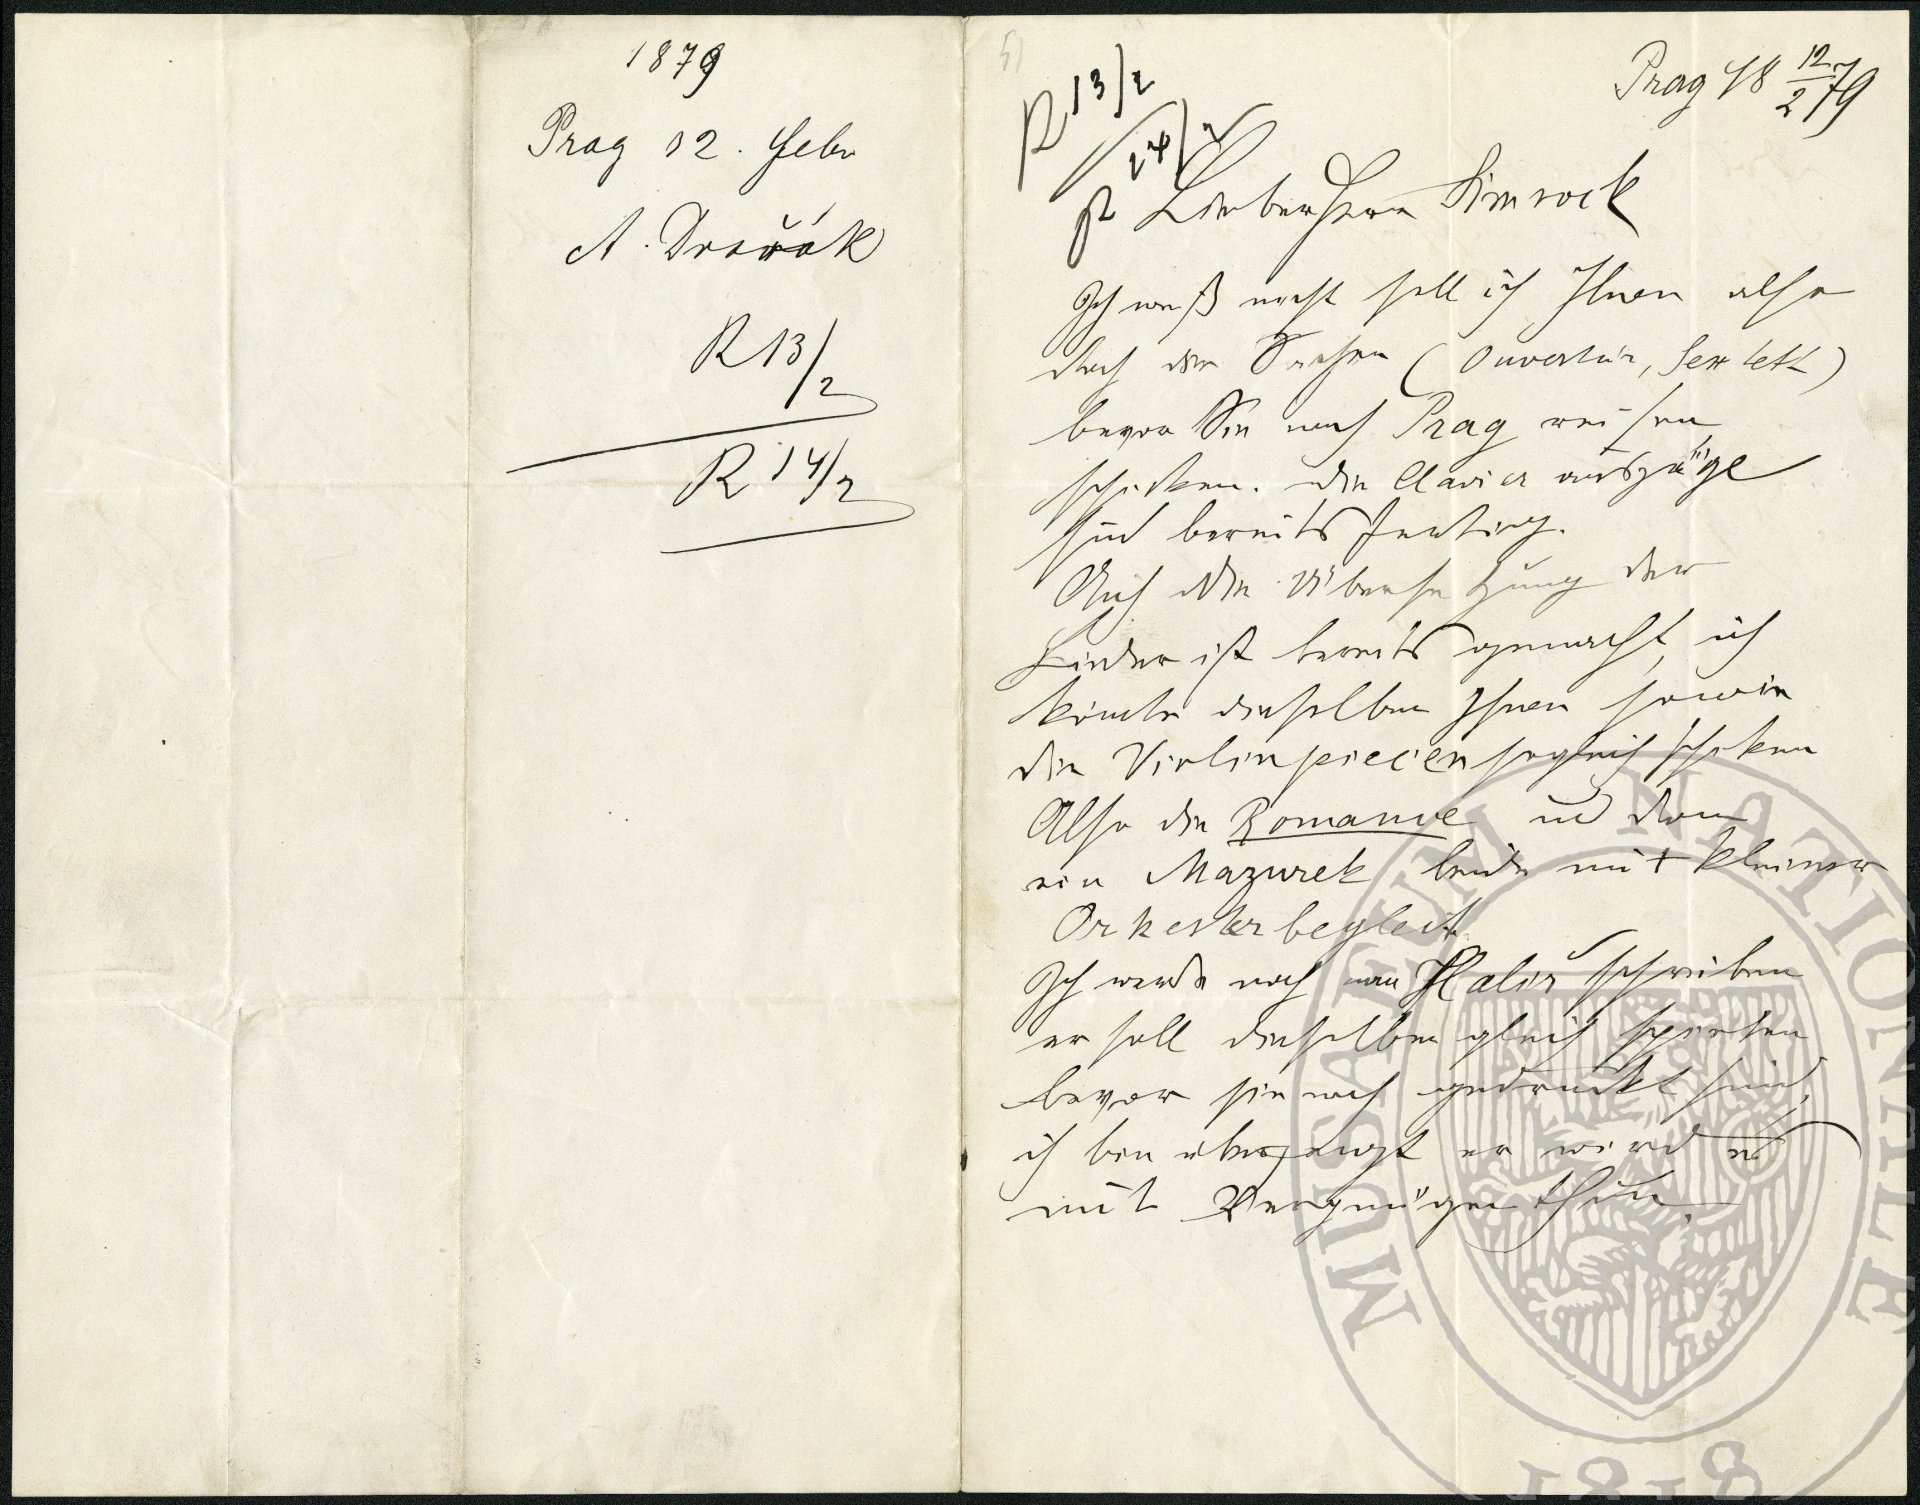 1879
Prag 12. Febr
A. Dvořák
R 13/2
R 14/2
5)
R 13/2
R 14/2
Prag 18 12/2 79
Lieber Herr Simrock
Ich weiß nicht soll ich Ihnen also
doch die Sachen (Ouvertur, Sextett)
bevor Sie nach Prag reisen
schicken. Die Clavierauszüge
sind bereits fertig.
Auch die Übersetzung der
Lieder ist bereits gemacht, ich
könnte dieselben Ihnen sowie
die Violinpiecen sogleich schiken
Also die Romance und dann
ein Mazurek beide mit kleiner
Orkesterbegleit.
Ich werde noch an Halir schreiben
er soll dieselben gleich spielen
bevor sie noch gedruckt sind,
ich bin überzeugt er wird es
mit Vergnügen thun.
MUSAEUM NATIONALE
1818